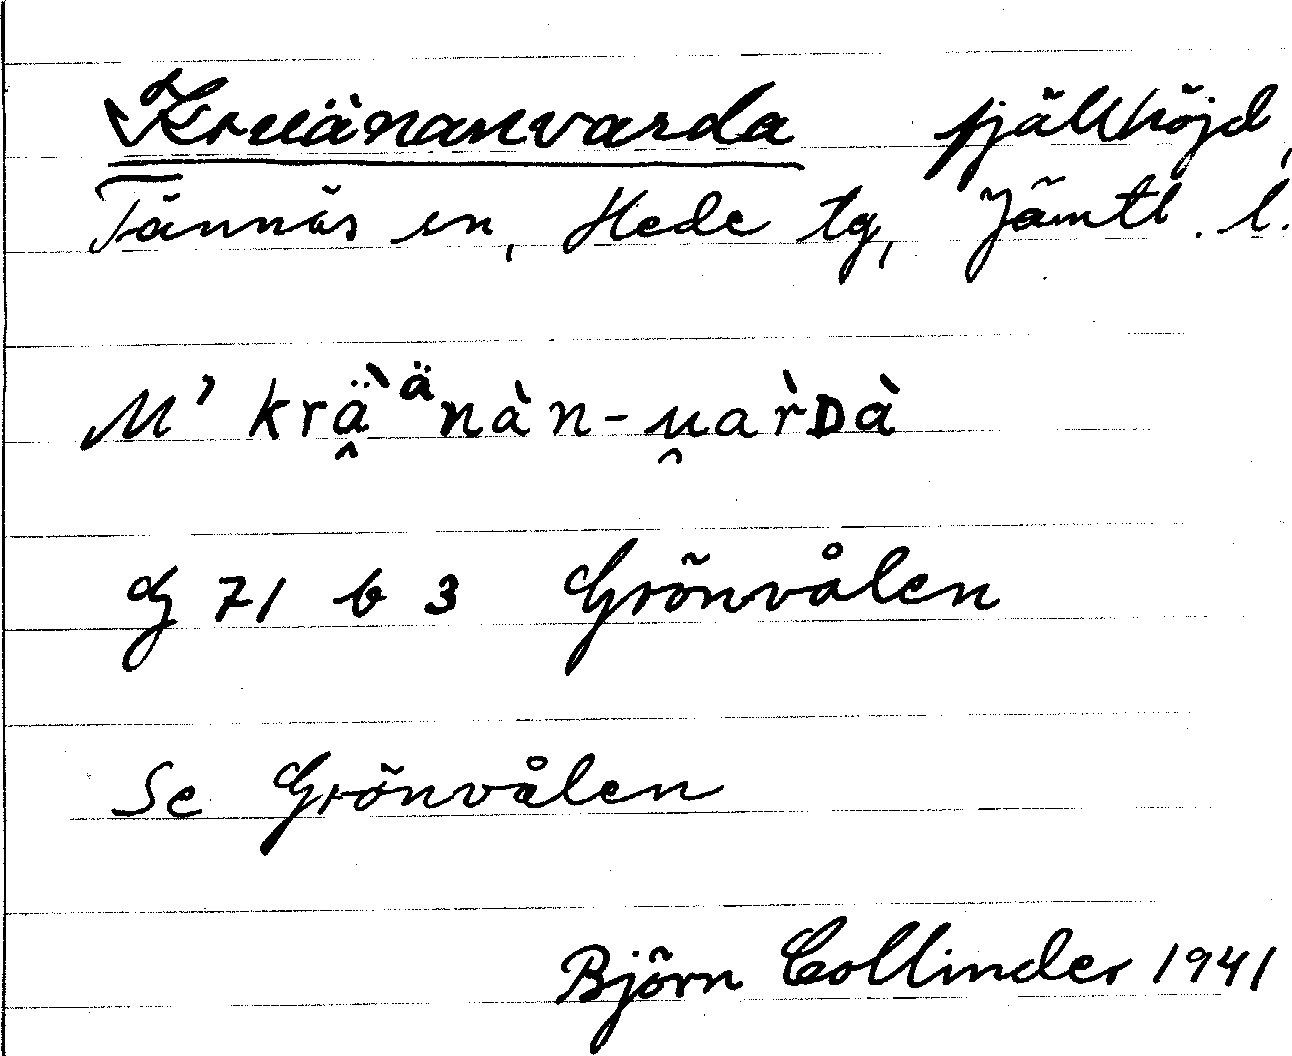 Kruänanvarda fjällhöjd,
Tännäs sn, Hede tg, Jämtl. l.
M' krä̭̀ ᵃ̈nàn-u̯ar̀ᴅà
G 71 b 3 Grönvålen
Se Grönvålen
Björn Collinder 1941